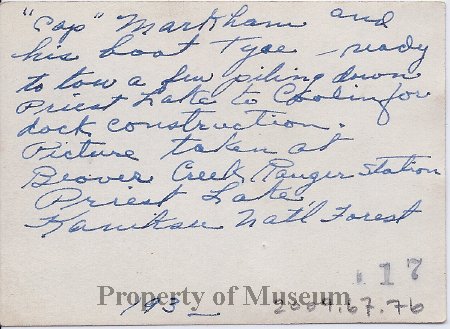 "Cap" Markham and
his boat Tyee - ready
to tow a few piling down
Priest Lake to Coolin for
dock construction.
Picture taken at
Beaver Creek Ranger Station
Priest Lake
Kaniksu Nat'l Forest
.17
Property of Museum
193_
2009.67.76